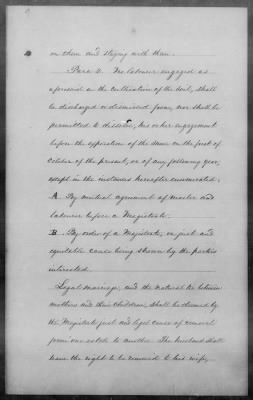 on them and staying with them.
Para 2. No laborer engaged as
aforesaid in the cultivation of the soil, shall
be discharged or dismissed from, nor shall be
permitted to dissolve, his or her engagement
before the expiration of the same on the first of
October of the present, or of any following year,
except in the instances hereafter enumerated.
A. By mutual agreement of master and
laborer before a Magistrate.
B. By order of a Magistrate, on just and
equitable cause being shown by the parties
interested.
Legal marriage, and the natural tie between
mothers and their children, shall be deemed by
the Magistrate just and legal cause of removal
from one estate to another. The husband shall
have the right to be removed to his wife,